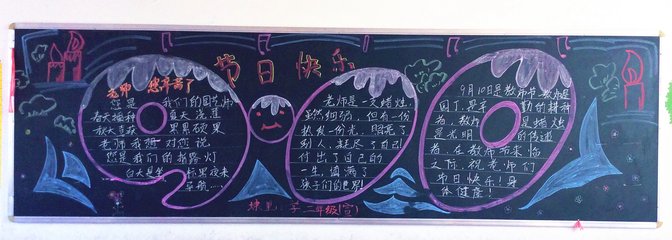 节日快乐
老师 您辛苦了
您是 我们的园艺师
春天播种 夏天浇灌
秋天喜获 果果硕果
老师我想对您说
您是我们的指路灯
白天是 黑夜来
导航……
老师是一支蜡烛,
虽然细弱,但有一份
热发一份光,照亮了
别人,耗尽了自己!
付出了自己的
一生,填满了
孩子们的世界!
9月10日是教师节,教师是
园丁,是辛 勤的耕种
者,教师 是蜡烛
是光明 的传递
者,在教师节来临
之际祝老师们
节日快乐!身
体健康!
二年级(宣)